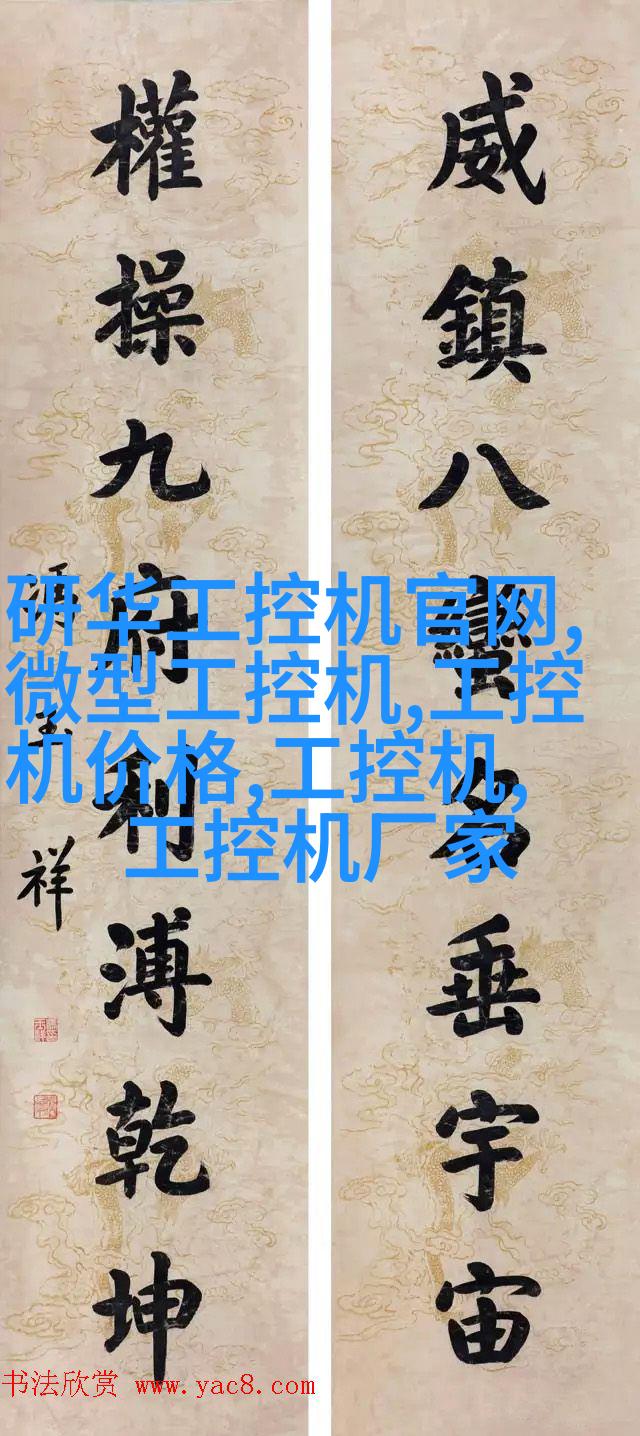 威鎮八蠻名垂宇宙
權操九府利溥乾坤
馮玉祥
研华工控机官网,
微型工控机,工控
机价格,工控机,
工控机厂家
书法欣赏 www.yac8.com